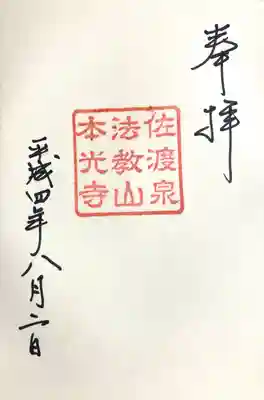 奉拝
佐渡泉
法教山
本光寺
平成四年八月二日